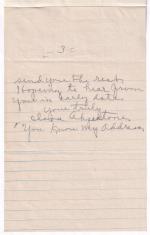 - 3 -
send you the rest,
Hoping to hear from
you in early date
Yours truly,
Clara
"You know My Address